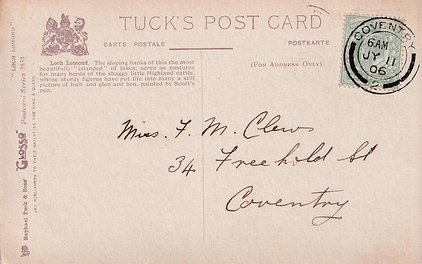 TUCK'S POST CARD
CARTE POSTALE
POSTKARTE
(FOR ADDRESS ONLY)
Loch Lomond. The sloping banks of this the most
beautifully "islanded" of lakes, serve as pastures
for many herds of the shaggy little Highland cattle,
whose sturdy figures have put life into many a still
picture of loch and glen and ben, painted by Scott's
pen.
COVENTRY
6 AM
JY 11
06
2
Miss. F. M. Clews
34 Freehold St
Coventry
"LOCH LOMOND."
Raphael Tuck & Sons' "Glosso" Postcard Series
ART PUBLISHERS TO THEIR MAJESTIES THE KING &